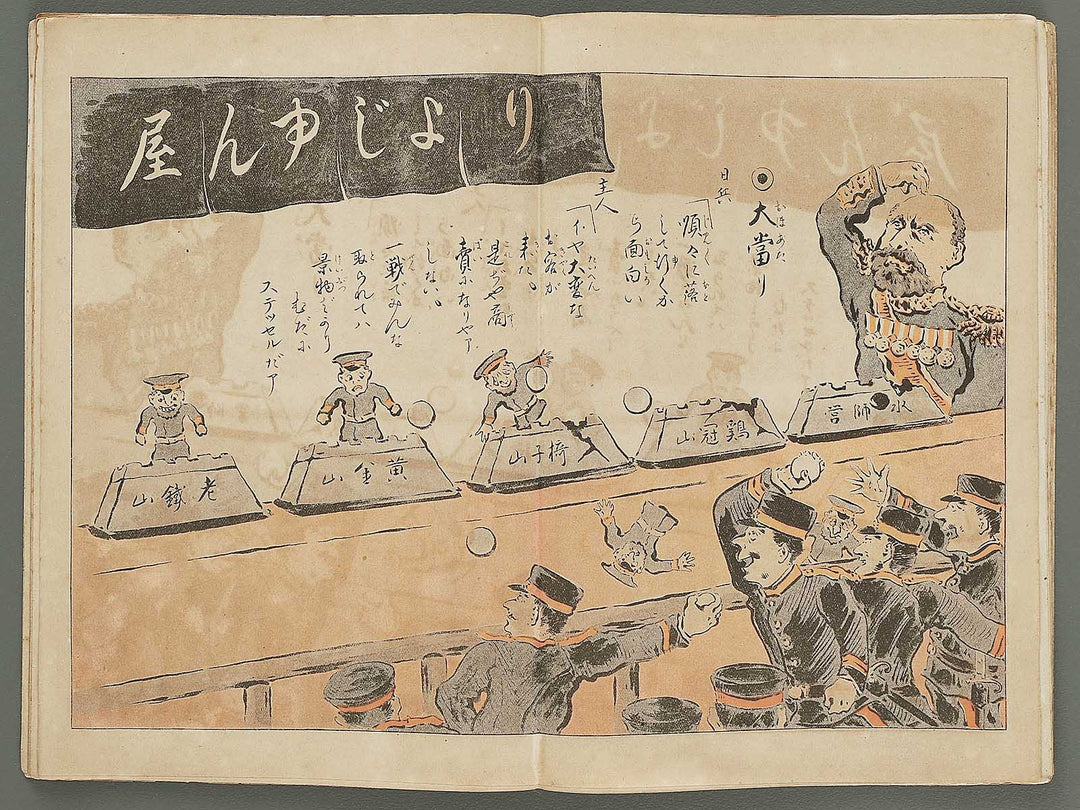 りよじゆん屋
◉大當り
日兵
「順々に落
して行くか
ら面白い
主人
「イヤ大変な
お客が
来た。
是ぢや商
賣になりやア
しない。
一戦でみんな
取られてハ
景物ばかり
むだに
ステッセルだア
水師営
鶏冠山
椅子山
黄金山
老鐵山